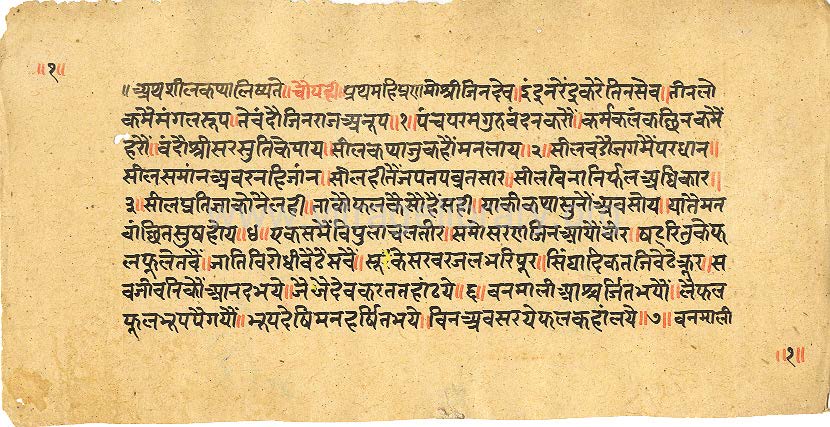 ॥१॥
॥अथ शीलकथा लिष्यते॥चौपही॥प्रथमहि प्रणमो श्री जिनदेव॥इंद्र नरेंद्र करै तिन सेव॥तीन लो
क मै मंगल रूप॥ते वंदौ जिनराज अनूप॥१॥पंच परम गुरु वंदन करौं॥कर्म कलंक छिनक मै
हरौं॥वंदौ श्री सरसुति के पाय॥सील कथा जु कहौं मन लाय॥२॥सील वडौ जग मै परधान॥
सील समांन अवर नहि जांन॥सील ही तै जप तप व्रत सार॥सील विना निर्फल अधिकार॥
३॥सील प्रतिज्ञा को ने लही॥ताको फल कैसो है सही॥याकी कथा सुनो अब सोय॥यातै मन
वांछित सुष होय॥४॥एक समै विपुलाचल तीर॥समोसरण जिन आयो वीर॥षट रितु के फ
ल फूले तवै॥जाति विरोधी वैठे सवै॥ सरवर जल भरि पूर॥सिंघादिक तजि वैठे क्रूर॥स
व जीवनि कौ आनद भये॥जै जै देव करत तहां ठये॥६॥वनमाली आश्चर्जित भयौ॥लै फल
फूल भूप पै गयौ॥भूप देषि मन हर्षित भये॥विन अवसर ये फल कहां लये॥७॥वनमाली
॥१॥